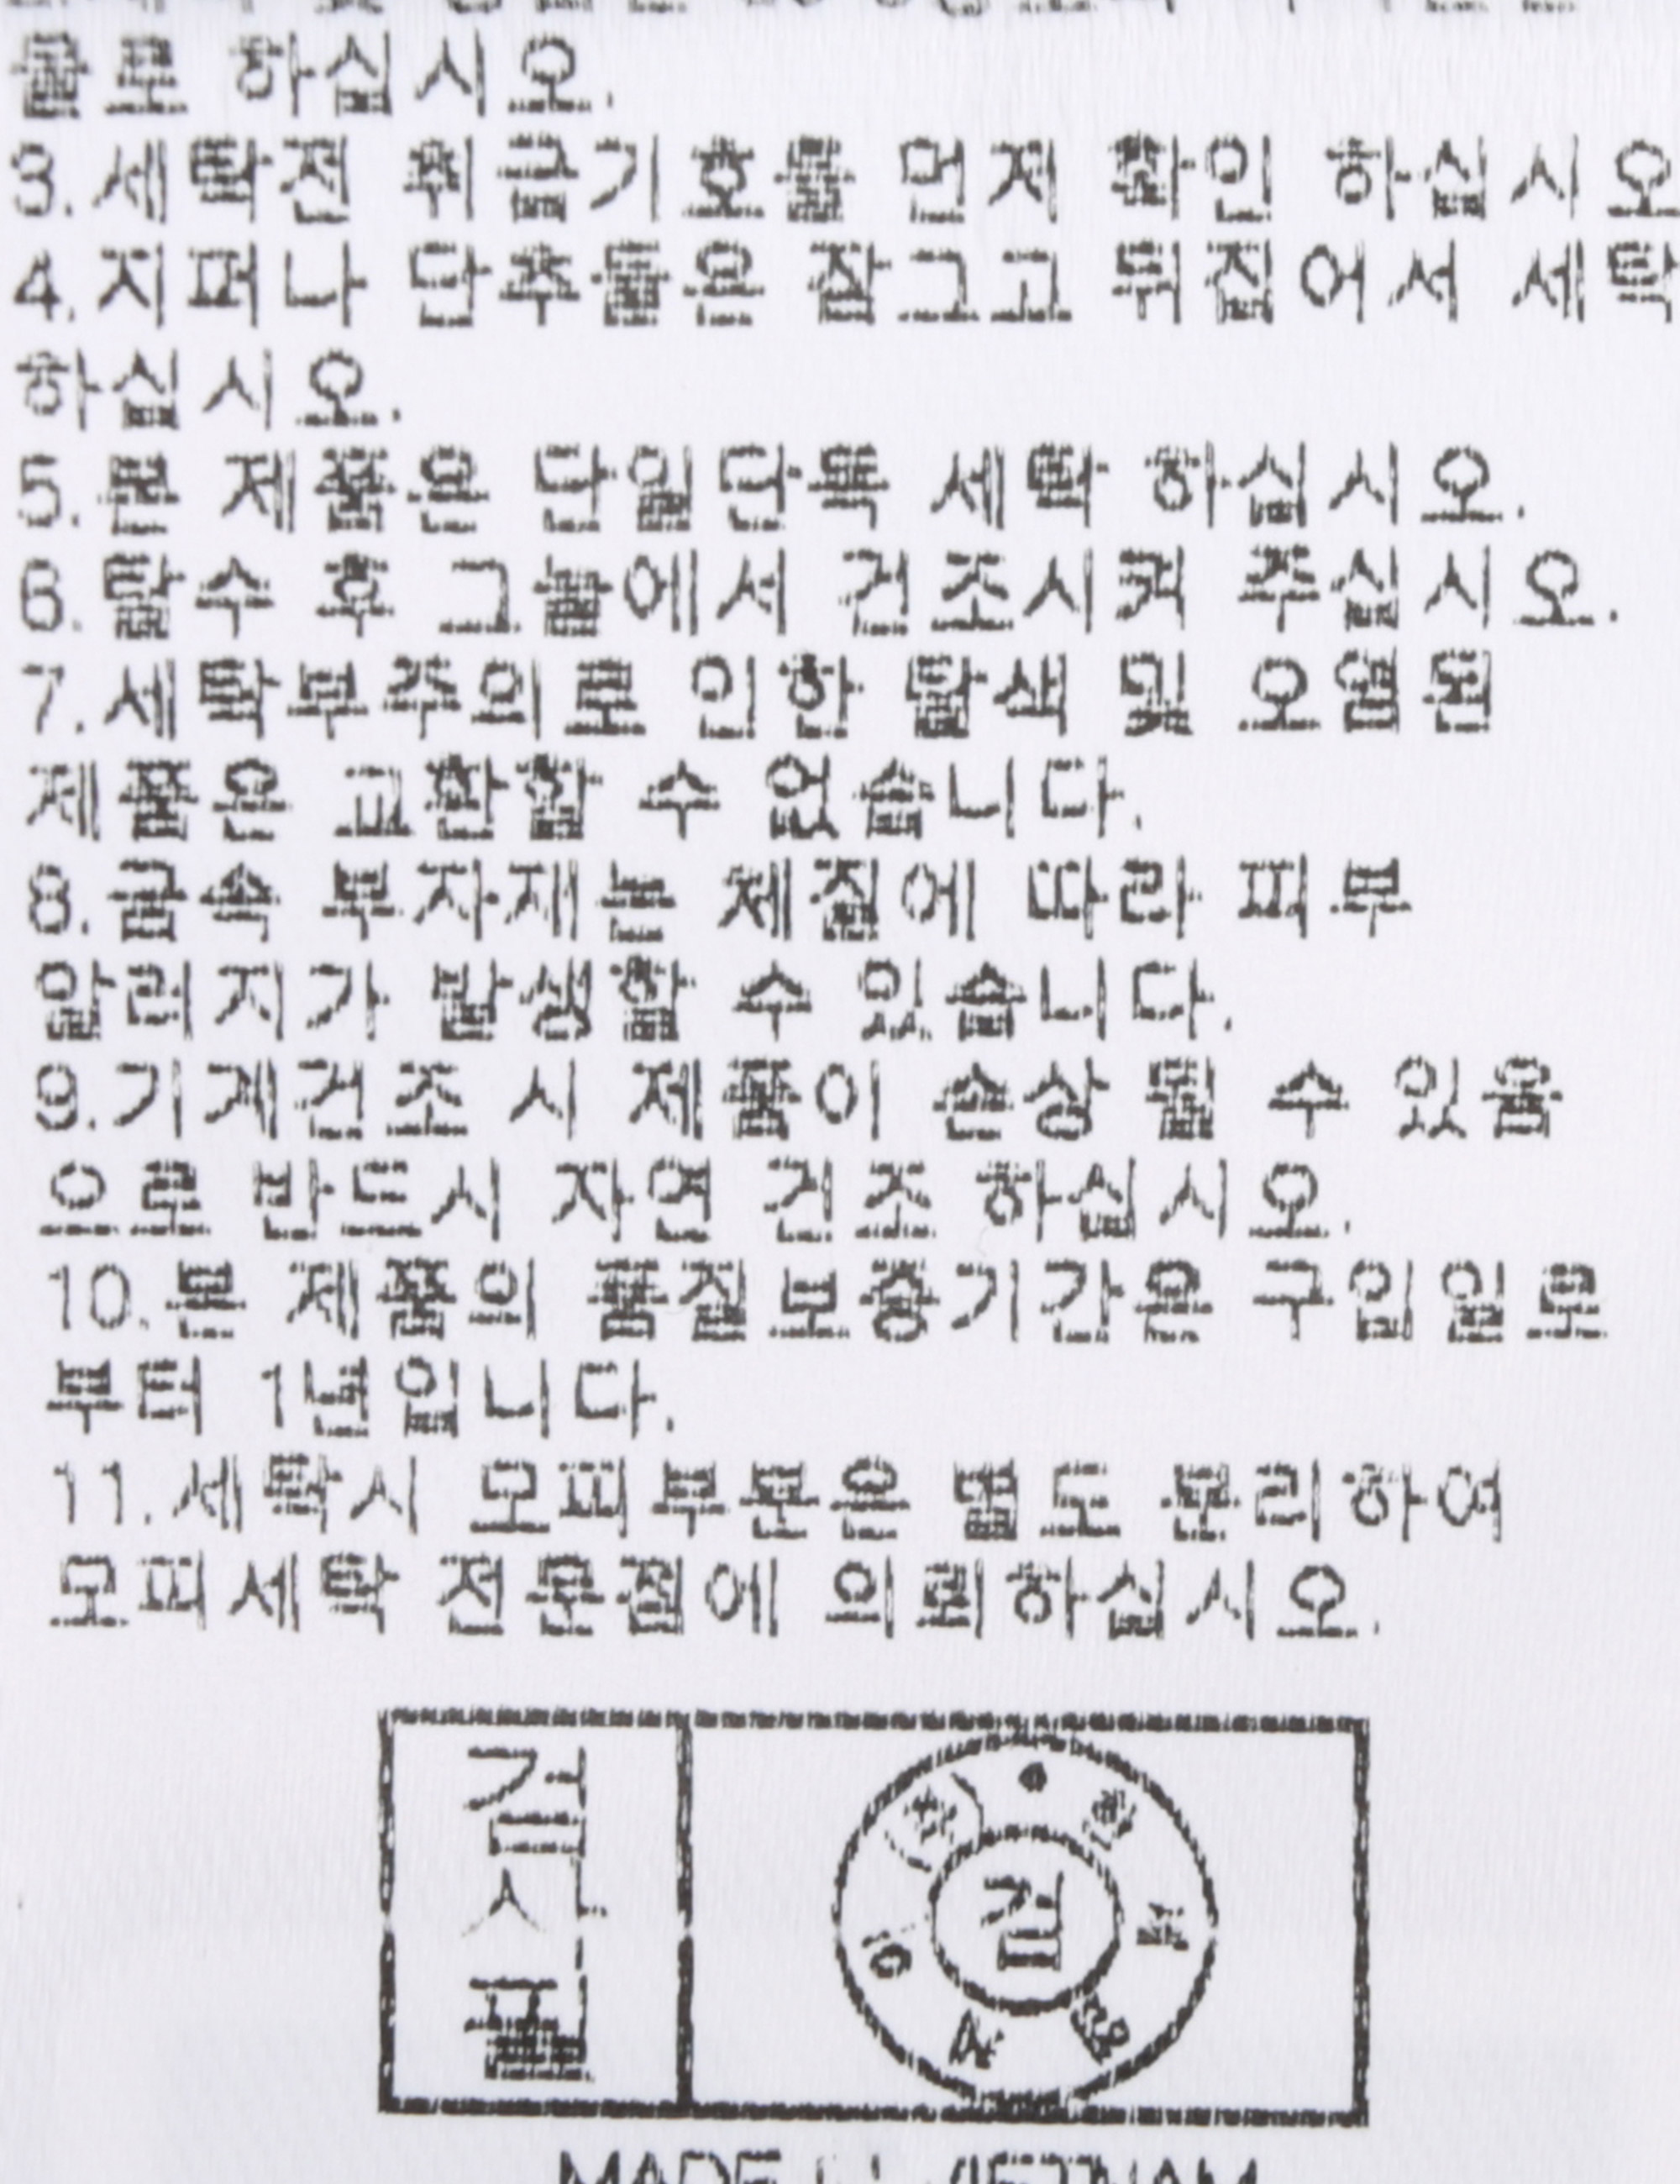 물로 하십시오.
3.세탁전 취급기호를 먼저 확인 하십시오
4.지퍼나 단추들은 잠그고 뒤집어서 세탁
하십시오.
5.본 제품은 단일단독 세탁 하십시오.
6.탈수 후 그늘에서 건조시켜 주십시오.
7.세탁부주의로 인한 탈색 및 오염된
제품은 교환할 수 없습니다.
8.금속 부자재는 체질에 따라 피부
알러지가 발생할 수 있습니다.
9.기계건조 시 제품이 손상 될 수 있음
으로 반드시 자연 건조 하십시오.
10.본 제품의 품질보증기간은 구입일로
부터 1년입니다.
11.세탁시 모피부분은 별도 분리하여
모피세탁 전문점에 의뢰하십시오.
검사필
검
MADE IN VIETNAM